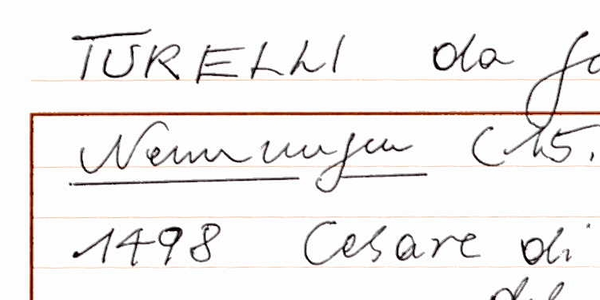 TURELLI da
Nennungen (15.
1498 Cesare di